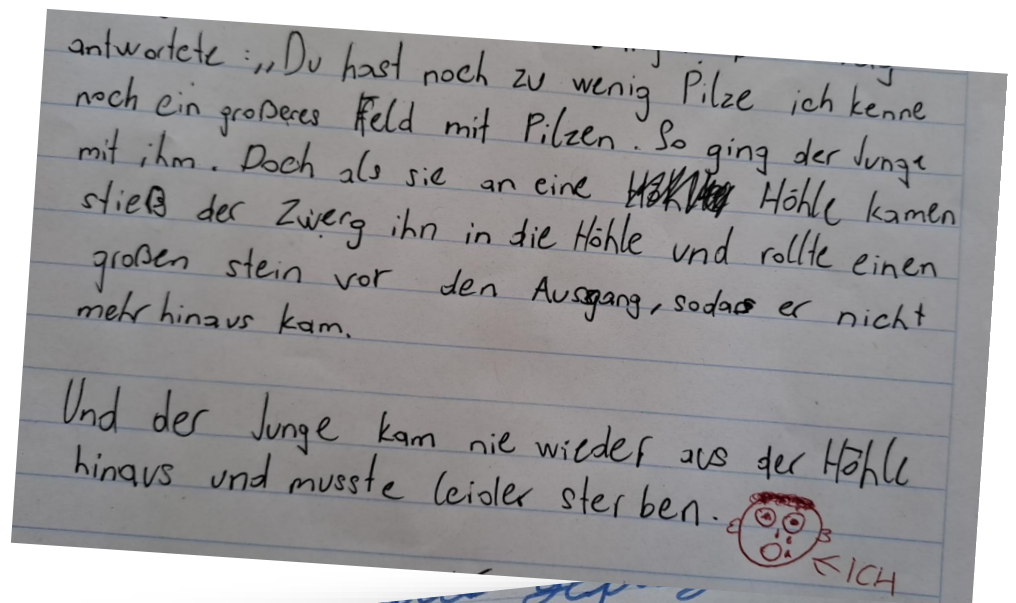 antwortete : „Du hast noch zu wenig Pilze ich kenne
noch ein großeres Feld mit Pilzen. So ging der Junge
mit ihm. Doch als sie an eine Höhle kamen
stieß der Zwerg ihn in die Höhle und rollte einen
großen stein vor den Ausgang, sodass er nicht
mehr hinaus kam.
Und der Junge kam nie wieder aus der Höhle
hinaus und musste leider sterben.
ICH